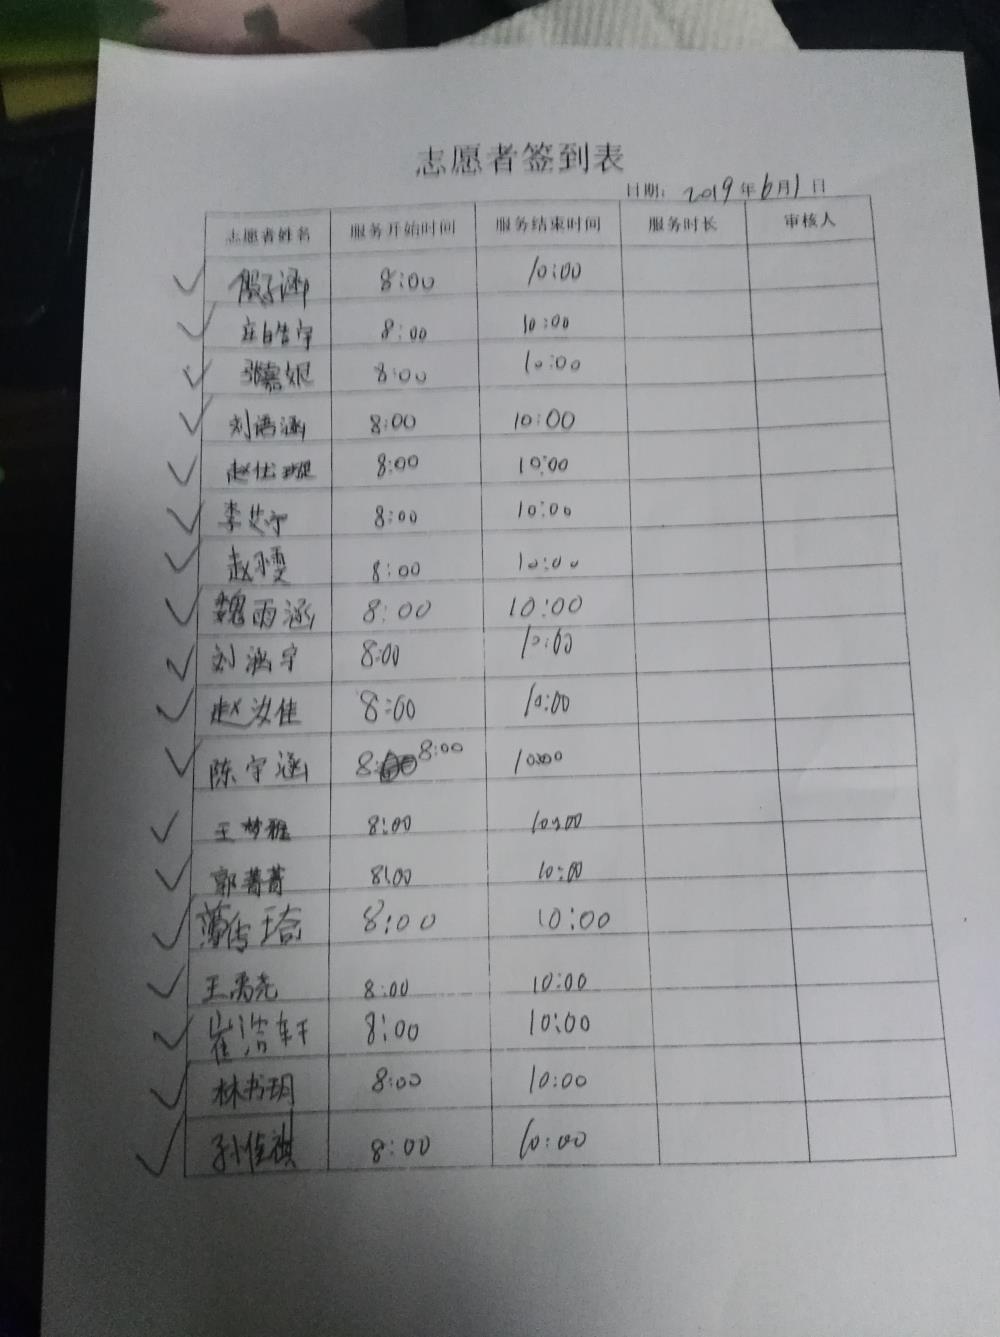 志愿者签到表
日期: 2019年6月1日
志愿者姓名 服务开始时间 服务结束时间 服务时长 审核人
殷子涵 8:00 10:00
庄皓宇 8:00 10:00
张嘉妮 8:00 10:00
刘语涵 8:00 10:00
赵仕琨 8:00 10:00
李艾宁 8:00 10:00
赵雯 8:00 10:00
魏雨涵 8:00 10:00
刘涵宇 8:00 10:00
赵汝佳 8:00 10:00
陈宇涵 8:00 10:00
王梦雅 8:00 10:00
郭菁菁 8:00 10:00
薄传琦 8:00 10:00
王禹尧 8:00 10:00
崔浩轩 8:00 10:00
林书玥 8:00 10:00
孙佳祺 8:00 10:00